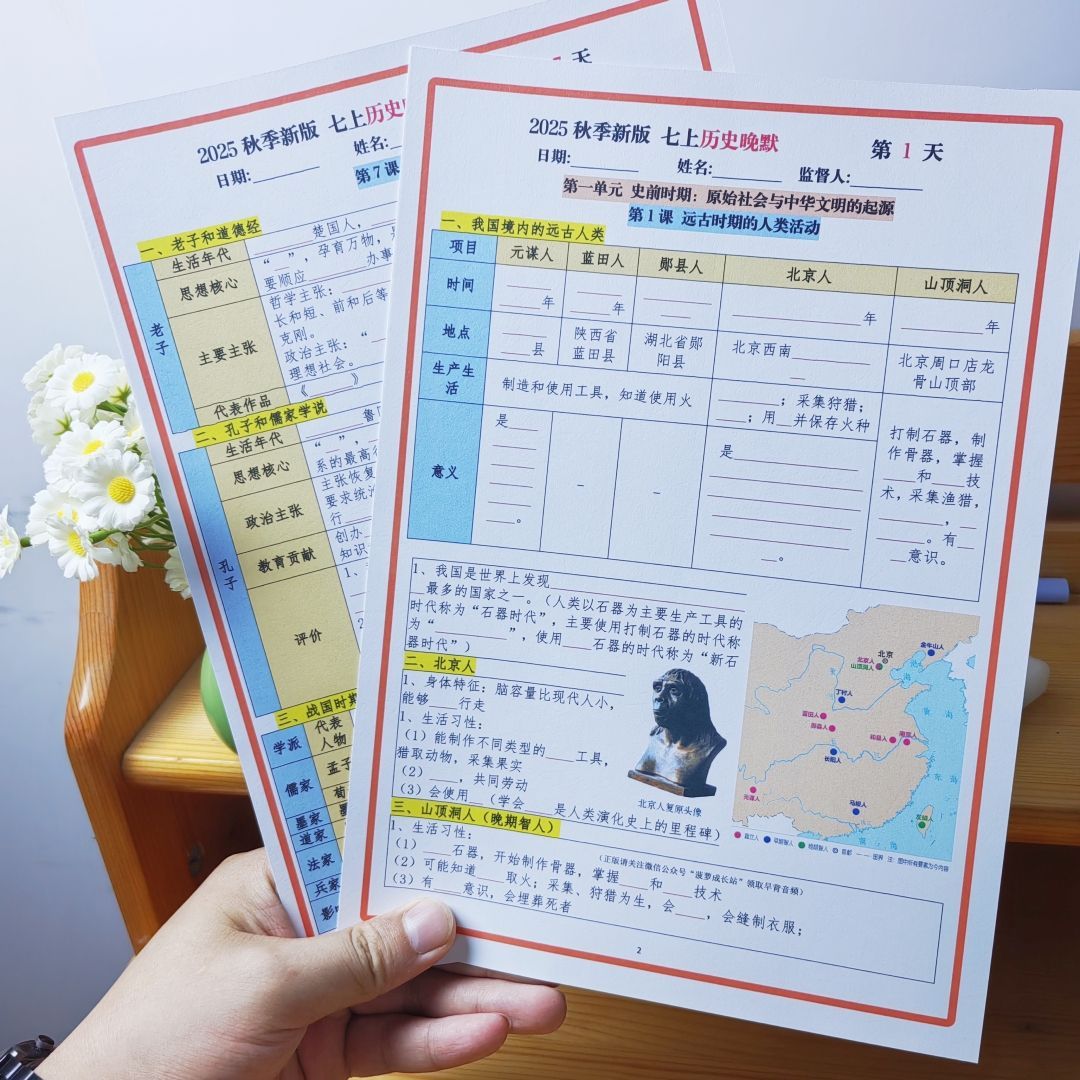 2025 秋季新版 七上历史晚默 第 1 天
日期:________ 姓名:________ 监督人:________
第一单元 史前时期：原始社会与中华文明的起源
第1课 远古时期的人类活动
一、我国境内的远古人类
项目 元谋人 蓝田人 郧县人 北京人 山顶洞人
时间 ______年 ______年 ______ ______年 ______年
地点 ______县 陕西省蓝田县 湖北省郧阳县 北京西南______ 北京周口店龙骨山顶部
生产生活 制造和使用工具，知道使用火 ______；采集狩猎；______；用__并保存火种 打制石器，制作骨器，掌握__和__技术，采集渔猎，______，______。有__意识。
意义 是______。 - - 是______。
1、我国是世界上发现______
__最多的国家之一。（人类以石器为主要生产工具的
时代称为“石器时代”，主要使用打制石器的时代称
为“______”，使用____石器的时代称为“新石
器时代”）
二、北京人
1、身体特征：脑容量比现代人小，
能够____行走
1、生活习性：
（1）能制作不同类型的____工具，
猎取动物，采集果实
（2）____，共同劳动
（3）会使用__（学会____是人类演化史上的里程碑）
北京人复原头像
北京
北京人
山顶洞人
金牛山人
丁村人
蓝田人
郧县人
和县人
南京人
长阳人
元谋人
马坝人
左镇人
渤海
黄海
东海
南海
直立人 早期智人 晚期智人 首都 国界 注：图中所有要素为今内容
三、山顶洞人（晚期智人）
（正版请关注微信公众号“菠萝成长站”领取早背音频）
1、生活习性：
（1）____石器，开始制作骨器，掌握____和____技术
（2）可能知道____取火；采集、狩猎为生，会____，会缝制衣服；
（3）有____意识，会埋葬死者
2
2025 秋季新版 七上历史
天
日期:________ 姓名:
第7课
一、老子和道德经
老子
生活年代 ______楚国人，
思想核心 “__”，孕育万物，
要顺应______办事
主要主张 哲学主张：
长和短、前和后等
克刚。
政治主张：“
理想社会。
代表作品 《______》
二、孔子和儒家学说
孔子
生活年代 ______鲁
思想核心 “__”，
系的最高
政治主张 主张恢复
要求统治
行
教育贡献 创办
知识
评价 1、
2
三、战国时期
学派 代表人物
儒家 孟子
荀
墨家 墨
道家
法家
兵家
影